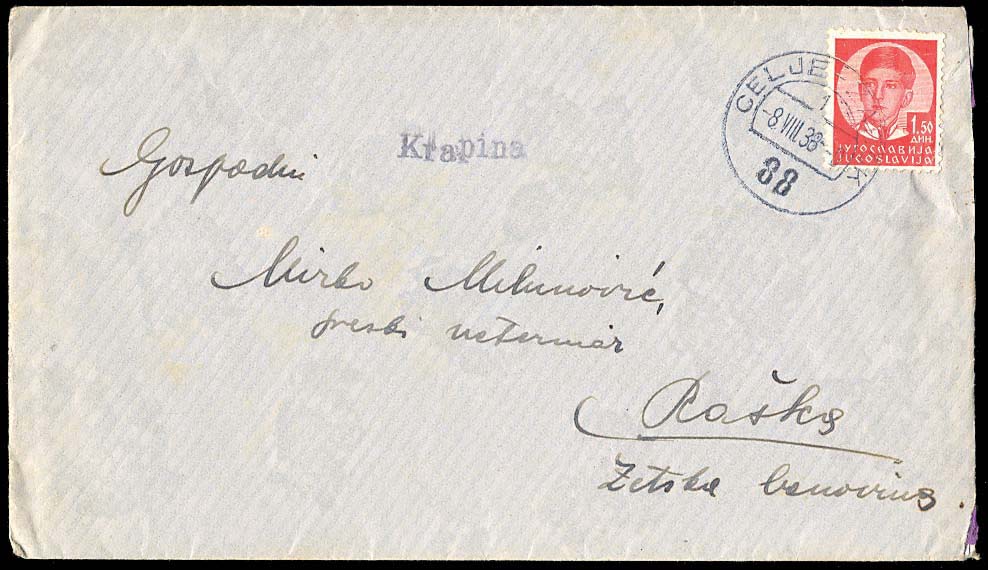 CELJE 1
-8.VIII.38
88
1.50
ДИН.
ЈУГОСЛАВИЈА
JUGOSLAVIJA
Krapina
Gospodin
Mirko Milunović,
sreski veterinar
Raška
Zetska banovina